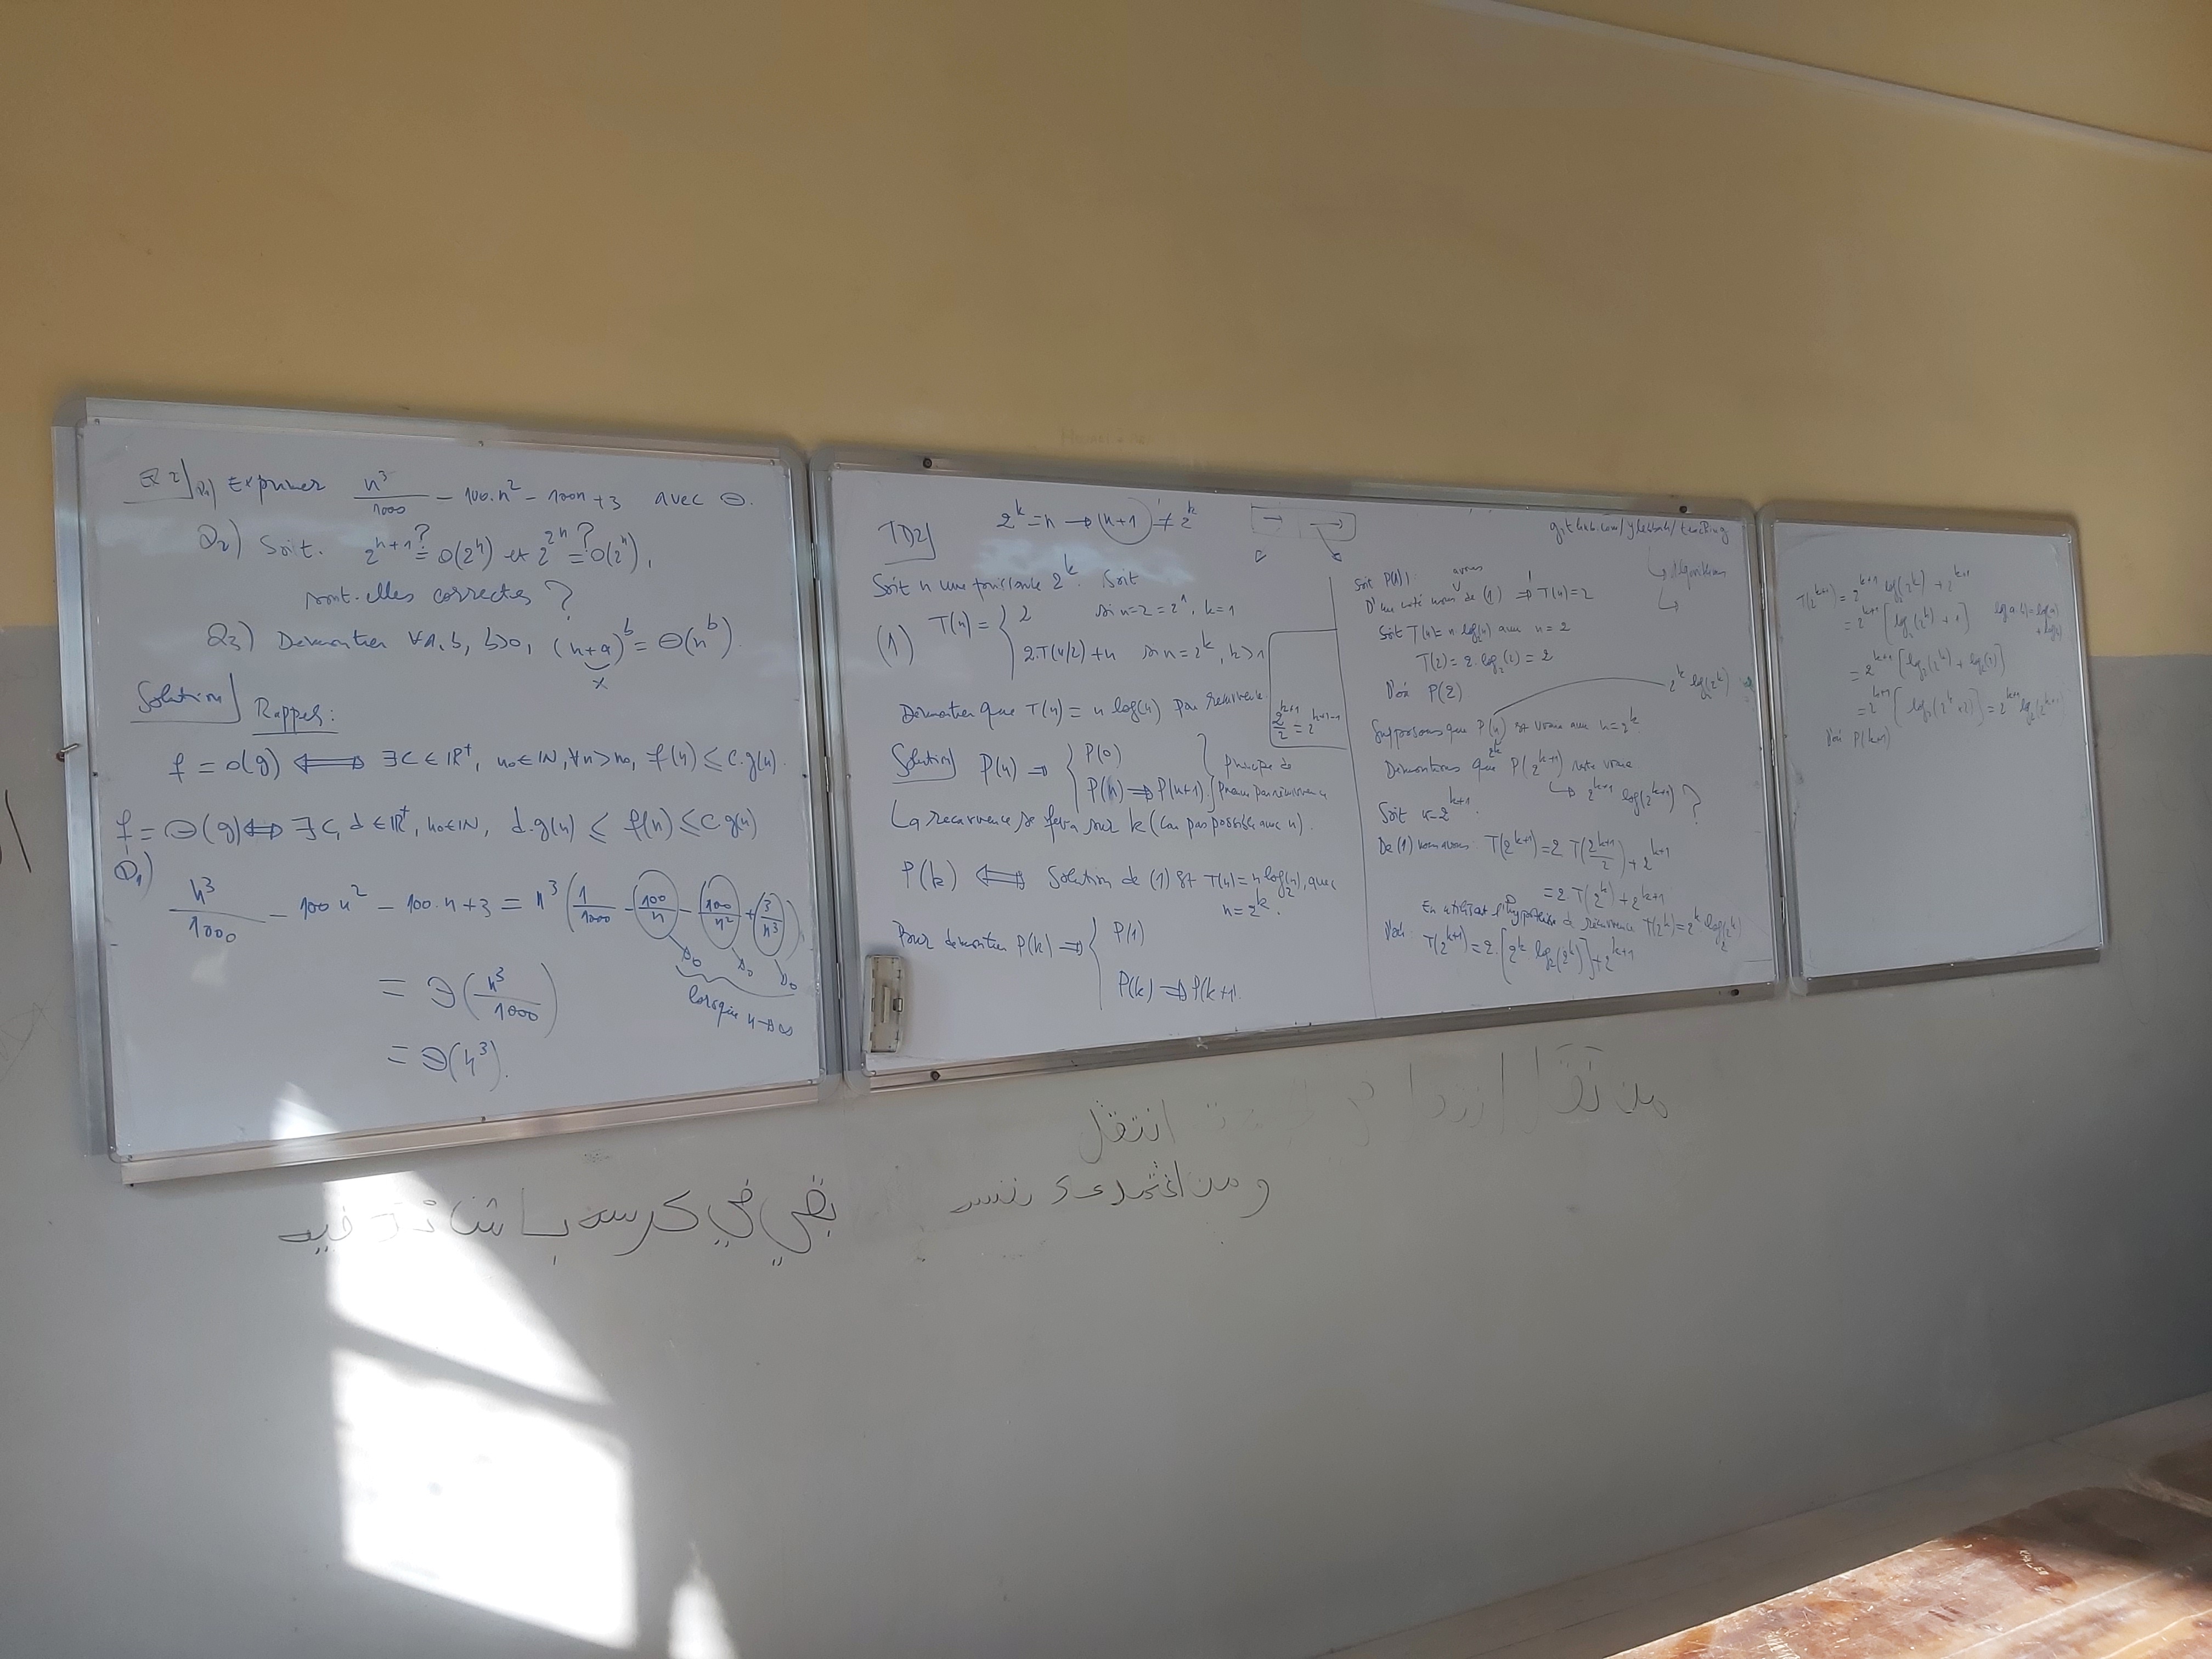 Ex 2) Q1) Exprimer n³/1000 - 100.n² - 100n + 3 avec Θ.
Q2) Soit. 2^(n+1) =? O(2^n) et 2^(2n) =? O(2^n),
sont-elles correctes ?
Q3) Démontrer ∀a, b, b>0, (n+a)^b = Θ(n^b).
x
Solution] Rappel:
f = O(g) ⟺ ∃C ∈ IR⁺, n₀ ∈ IN, ∀n > n₀, f(n) ≤ C.g(n).
f = Θ(g) ⟺ ∃ C, d ∈ IR⁺, n₀ ∈ IN, d.g(n) ≤ f(n) ≤ C.g(n)
Q1)
n³/1000 - 100 n² - 100.n + 3 = n³ (1/1000 - 100/n - 100/n² + 3/n³)
→0 →0 →0
lorsque n→∞
= Θ(n³/1000)
= Θ(n³).
TD2] 2^k = n → (n+1) ≠ 2^k
Soit n une puissance 2^k. Soit
(1) T(n) = { 2 si n=2=2¹, k=1
2.T(n/2)+n si n=2^k, k>1
Démontrer que T(n) = n log(n) par récurrence
2^(k+1)/2 = 2^(k+1-1)
Solution] P(n) ⇒ { P(0)
P(n) ⇒ P(n+1). } principe de preuve par récurrence
La récurrence se fera sur k (car pas possible avec n).
P(k) ⟺ Solution de (1) est T(n) = n log₂(n), avec
n = 2^k.
Pour démontrer P(k) ⇒ { P(1)
P(k) ⇒ P(k+1).
github.com/ /teaching
↳ Algorithms
↳
Soit P(1):
D'un coté nous avons de (1) ⇒ T(n) = 2
Soit T(n) = n log₂(n) avec n = 2
T(2) = 2.log₂(2) = 2
D'où P(2)
2^k log(2^k)
Supposons que P(n) est vraie avec n = 2^k.
2^k
Démontrons que P(2^(k+1)) reste vraie
↳ 2^(k+1) log(2^(k+1)) ?
Soit n = 2^(k+1).
De (1) nous avons: T(2^(k+1)) = 2 T(2^(k+1)/2) + 2^(k+1)
= 2 T(2^k) + 2^(k+1)
En utilisant l'hypothèse de récurrence T(2^k) = 2^k log₂(2^k)
D'où: T(2^(k+1)) = 2.[2^k log₂(2^k)] + 2^(k+1)
T(2^(k+1)) = 2^(k+1) log₂(2^k) + 2^(k+1)
= 2^(k+1) [log₂(2^k) + 1] log(a.b) = log(a) + log(b)
= 2^(k+1) [log₂(2^k) + log₂(2)]
= 2^(k+1) [log₂(2^k × 2)] = 2^(k+1) log₂(2^(k+1))
D'où P(k+1)
من نقل انتقل
ومن اعتمد
بقي في